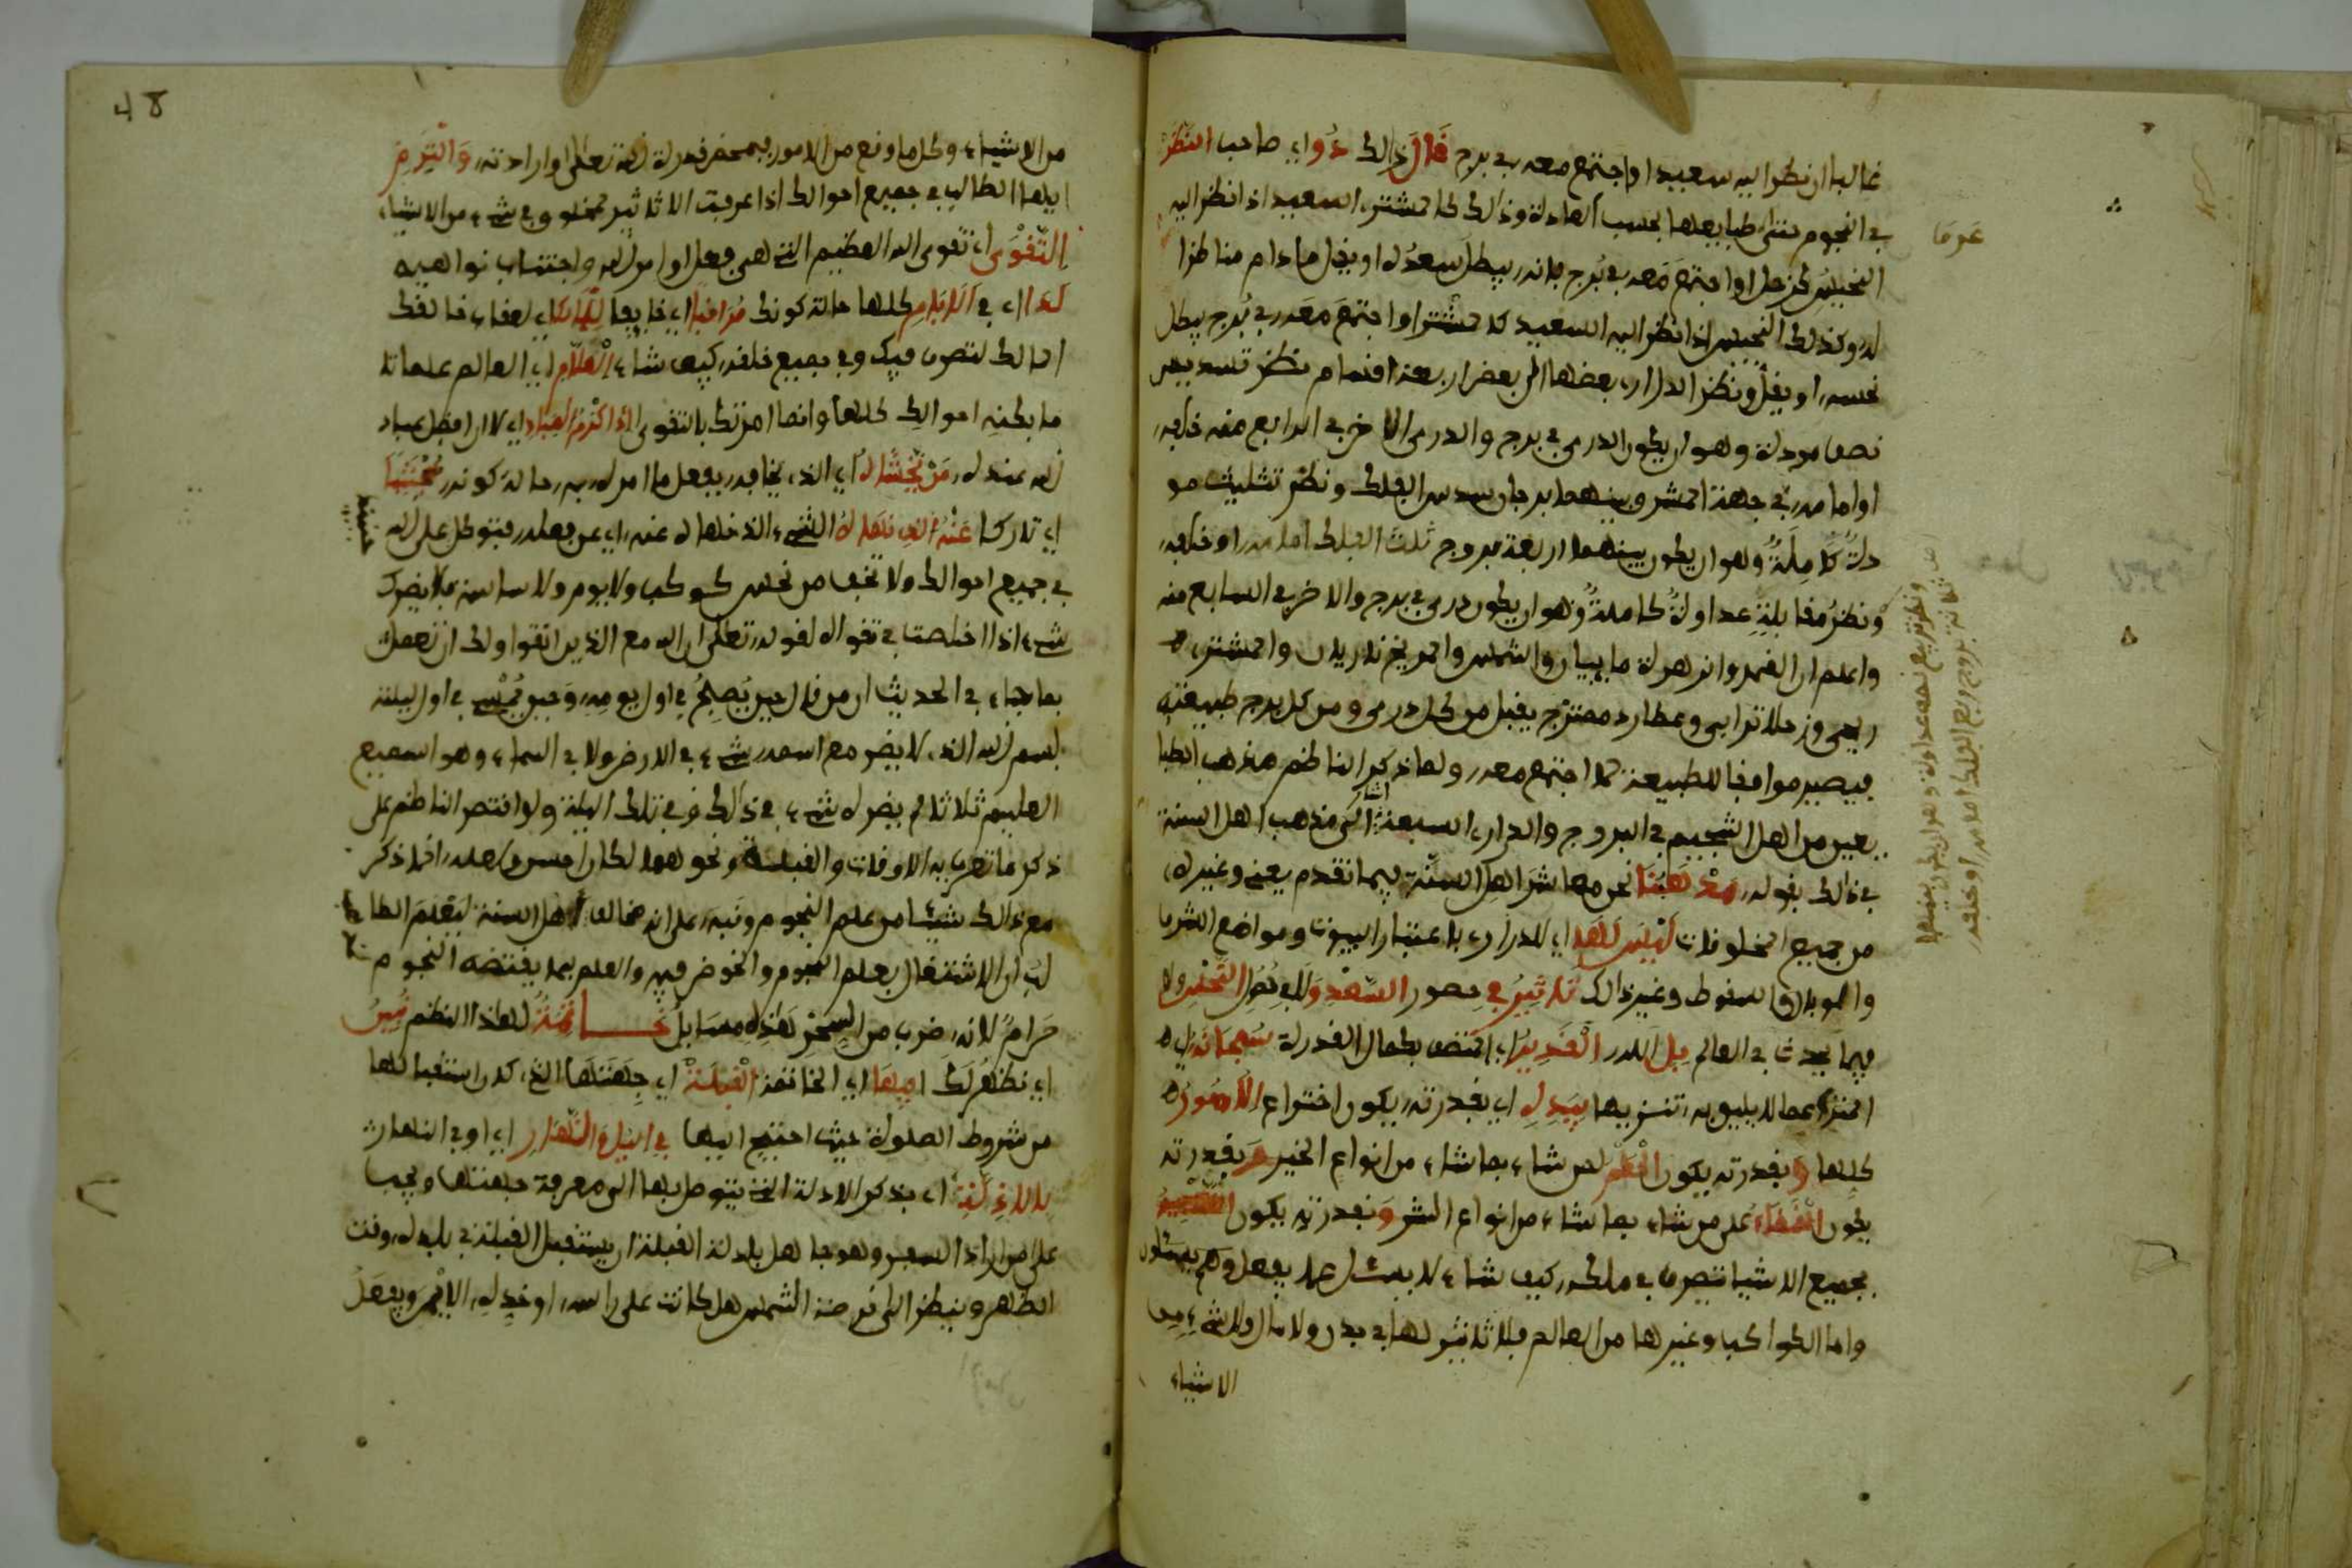 غالبا ان نظر اليه سعيد او اجتمع معه في برج قال ذالك ذوا اي صاحب النظر
في النجوم بحسب العادة وذالك كالمشتري السعيد اذا نظر اليه
النحيس كزحل او اجتمع معه في برج فانه يبطل سعده او يقل ما دام مناظرا
له وكذلك النحيس اذا نظر اليه السعيد كالمشتري او اجتمع معه في برج يبطل
نحسه او يقل ونظر الدراري بعضها الى بعض اربعة اقسام نظر تسديس
نصف مودة وهو ان يكون الدري في برج والدري الاخر في الرابع منه خلفه
او امامه في جهة الممشر وبينهما برجان سدس الفلك ونظر تثليث مو
دة كاملة وهو ان يكون بينهما اربعة بروج ثلث الفلك امامه او خلفه
ونظر مقابلة عداوة كاملة وهو ان يكون دري في برج والاخر في السابع منه
واعلم ان القمر والزهرة ماييان والشمس والمريخ ناريان والمشتري
ريحي وزحلا ترابي وعطارد ممتزج يقبل من كل دري ومن كل برج طبيعته
فيصير موافقا للطبيعة لما اجتمع معه ولما ذكر الناظم مذهب الطبا
يعيين من اهل التنجيم في البروج والدراري السبعة اشار الى مذهب اهل السنة
في ذالك بقوله مذهبنا نحن معاشر اهل السنة فيما تقدم يعني وغيره
من جميع المخلوقات ليس لها اي للدراري باعتبار البيوت ومواضع الشرف
والوبال والسقوط وغير ذالك تاثير في حصور السعد ولا في حصول النحس ولا
فيما يحدث في العالم بل لله القدير اي المتصف بكمال القدرة سبحانه اي
المنزه عما لا يليق به تنزيها بيده اي بقدرته يكون اختراع الامور
كلها وبقدرته يكون النفع لمن شاء بما شاء من انواع الخير وبقدرته
يكون القضاء على من شاء بما شاء من انواع الشر وبقدرته يكون
جميع الاشيا تتصرف في ملكه كيف شاء لا يسئل عما يفعل وهم يسئلون
واما الكواكب وغيرها من العالم فلا تاثير لها في بدن ولا مال ولا شيء من
الاشياء
عرفا
ونظر تربيع نصف عداوة وهو ان يكون بينهما
ثلاثة بروج ربع الفلك امامه او خلفه
48
من الاشياء وكل ما وقع من الامور فبمحض قدرة الله تعالى وارادته والتزم
ايها الطالب في جميع احوالك اذا عرفت الا تاثير لمخلوق في شيء من الاشياء
التقوى اي تقوى الله العظيم التي هي فعل اوامر الله واجتناب نواهيه
لدا اي في الايام كلها حالة كونك مراقبا اي خايفا للقاء اي لعقاب خالقك
المالك لتصرف فيك وفي جميع خلقه كيف شاء العلام اي العالم علما تا
ما بكنه احوالك كلها وانما امرتك بالتقوى اذ اكرم العباد اي لان افضل عباد
الله عنده من يخشاه اي الذي يخافه بفعل ما امره به حالة كونه مجتنبا
اي تاركا عنه الذي نهاه الشيء الذي نهاه عنه اي عن فعله فتوكل على الله
في جميع احوالك ولا تخف من نحس كوكب ولا يوم ولا ساعة فلا يضرك
شيء اذا اخلصت في تقواه لقوله تعالى ان الله مع الذين اتقوا ولك ان تعمل
بما جاء في الحديث ان من قال حين يصبح في اول يومه وحين يمسي في اول ليلته
بسم الله الذي لا يضر مع اسمه شيء في الارض ولا في السماء وهو السميع
العليم ثلاثا لم يضره شيء في ذالك وفي تلك الليلة ولو اقتصر الناظم على
ذكر ما تعرف به الاوقات والقبلة ونحوهما لكان احسن ولعله انما ذكر
مع ذالك شيئا من علم النجوم ونبه على انه مخالف اهل السنة ليعلم الطا
لب ان الاشتغال بعلم النجوم والخوض فيه والعلم بما يقتضه النجوم
حرام لانه ضرب من السحر هذه مسايل خاتمة لهذا النظم تبين
اي تظهر لك فيها اي الخاتمة القبلة اي جهتها التي كان استقبالها
من شروط الصلوة حيث احتيج اليها في اليل والنهار اي او في النهار
بالادلة اي بذكر الادلة التي يتوصل بها الى معرفة جهتها ويجب
على من اراد السفر وهو جاهل بادلة القبلة ان يستقبل القبلة في بلده وقت
الظهر وينظر الى قرصة الشمس هل كانت على راسه او خده الايمن ويفعل